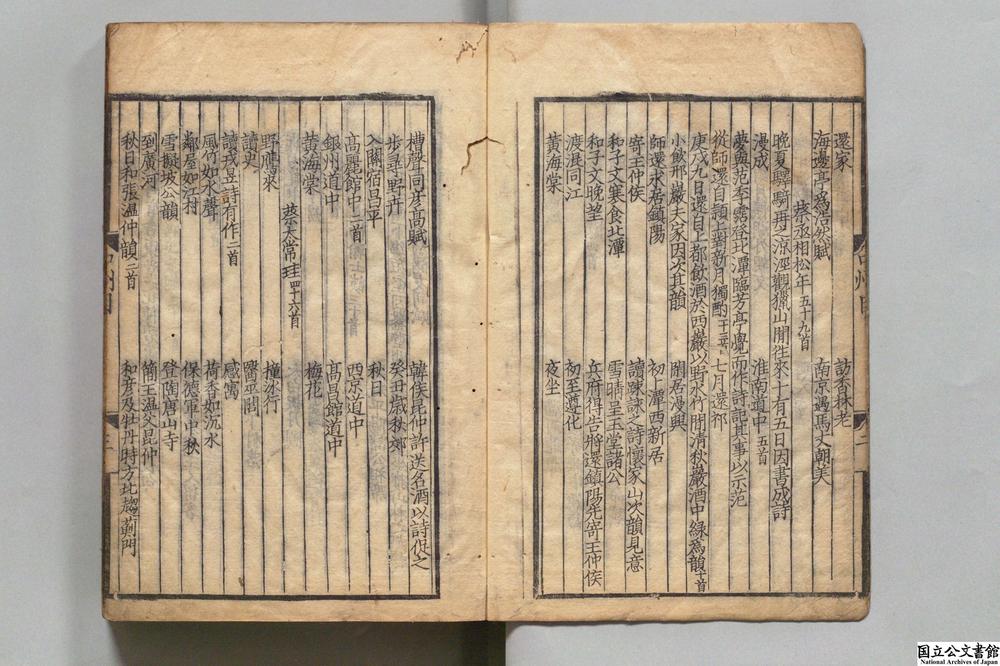 還家　訪香林老
海邊亭為浩然賦　南京遇馬丈朝美
蔡丞相松年　五十九首
晚夏驛騎再之涼涇觀獵山間往來十有五日因書成詩
漫成　淮南道中　五首
夢與范季霑登北潭臨芳亭覺而作詩記其事以示范
從師還自潁上對新月獨酌　十三首　七月還祁
庚戌九日還自上都飲酒於西巖以野水竹間清秋巖酒中綠為韻　十首
小飲邢巖夫家因次其韻
師還求居鎮陽　閒居漫興
寄王仲侯　初卜潭西新居
和子文寒食北潭　讀詠之詩懷家山次韻見意
和子文晚望　雪晴呈玉堂諸公
渡混同江　兵府得告將還鎮陽先寄王仲侯
黃海棠　初至遵化
夜坐
槽聲同彦高賦　韓侯毘仲許送名酒以詩促之
步尋野卉　癸丑歲秋郊
入關宿昌平　秋日
高麗館中　二首　西京道中
銀州道中　高昌館道中
黃海棠　梅花
蔡太常珪　四十六首
野鷹來　撞冰行
讀史　醫巫閭
讀戎昱詩有作　二首　感寓
風竹如水聲　荷香如沉水
鄰屋如江村　保德軍中秋
雪擬坡公韻　登陶唐山寺
到廣河　簡王溫父昆仲
秋日和張溫仲韻　二首　和彦及牡丹時方北趨薊門